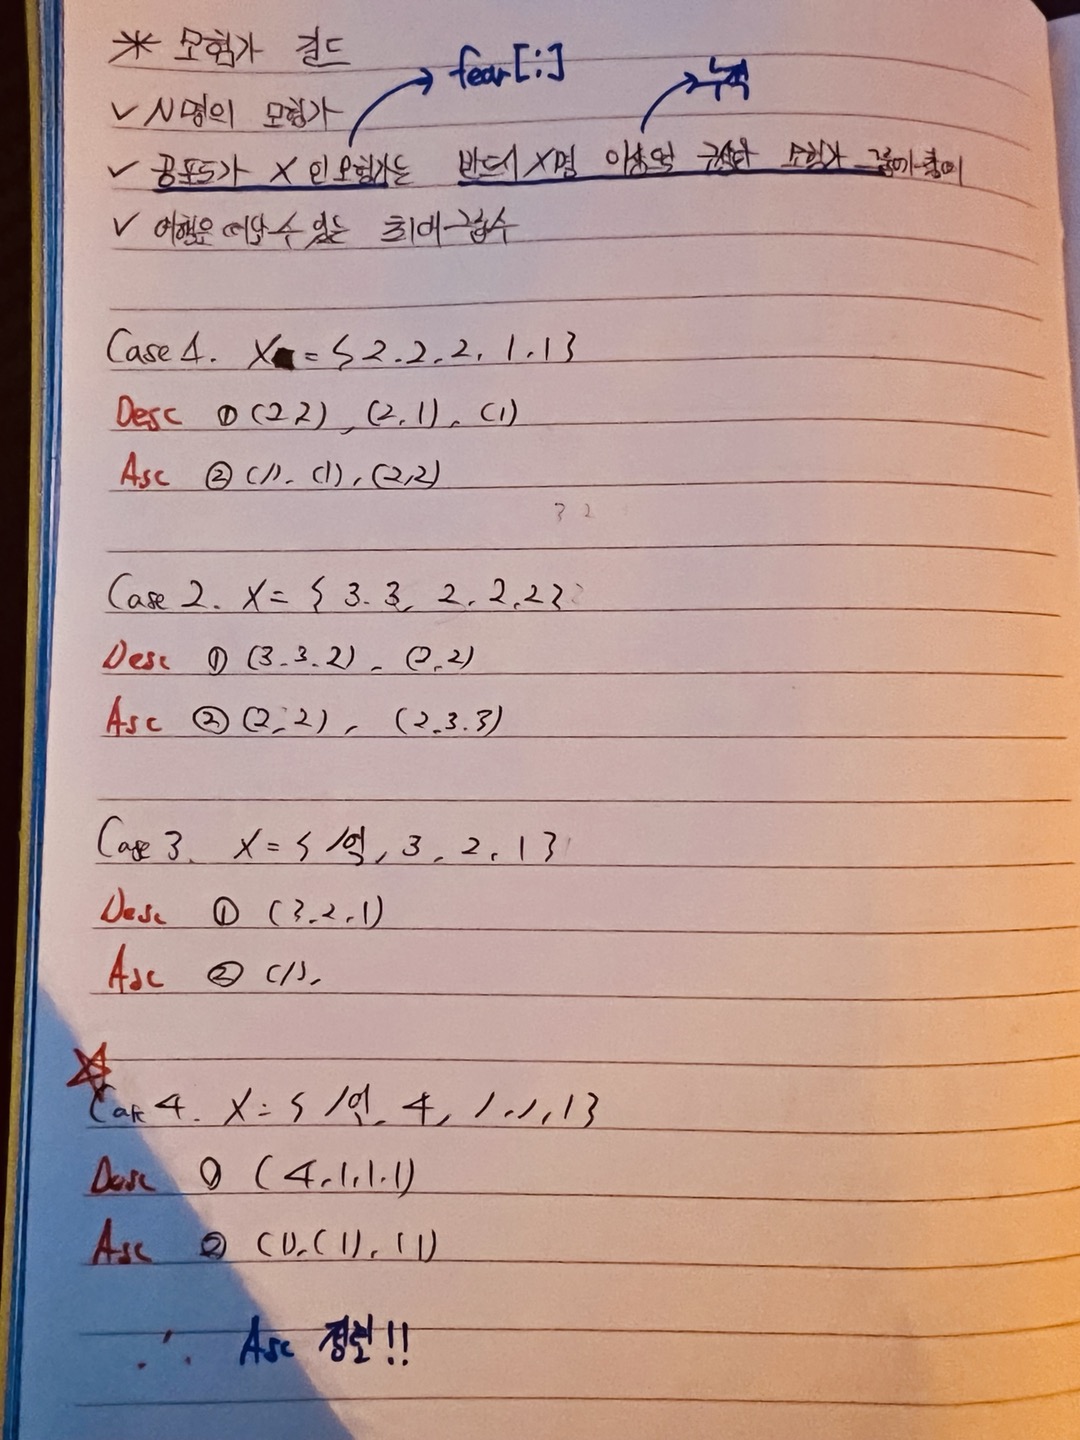 * 모험가 길드
fear[i]
누적
✓ N명의 모험가
✓ 공포도가 X인 모험가는 반드시 X명 이상으로 구성한 모험가 그룹에 참여
✓ 여행을 떠날 수 있는 최대 그룹 수
Case 1. X = { 2. 2. 2, 1. 1 }
Desc ① (2 2), (2, 1), (1)
Asc ② (1), (1), (2,2)
3 2
Case 2. X = { 3. 3, 2, 2, 2 }
Desc ① (3, 3. 2), (2, 2)
Asc ② (2, 2), (2, 3. 3)
Case 3. X = { 1억, 3, 2, 1 }
Desc ① (3, 2, 1)
Asc ② (1),
Case 4. X = { 1억, 4, 1, 1, 1 }
Desc ① (4, 1, 1, 1)
Asc ② (1), (1), (1)
∴ Asc 정렬!!